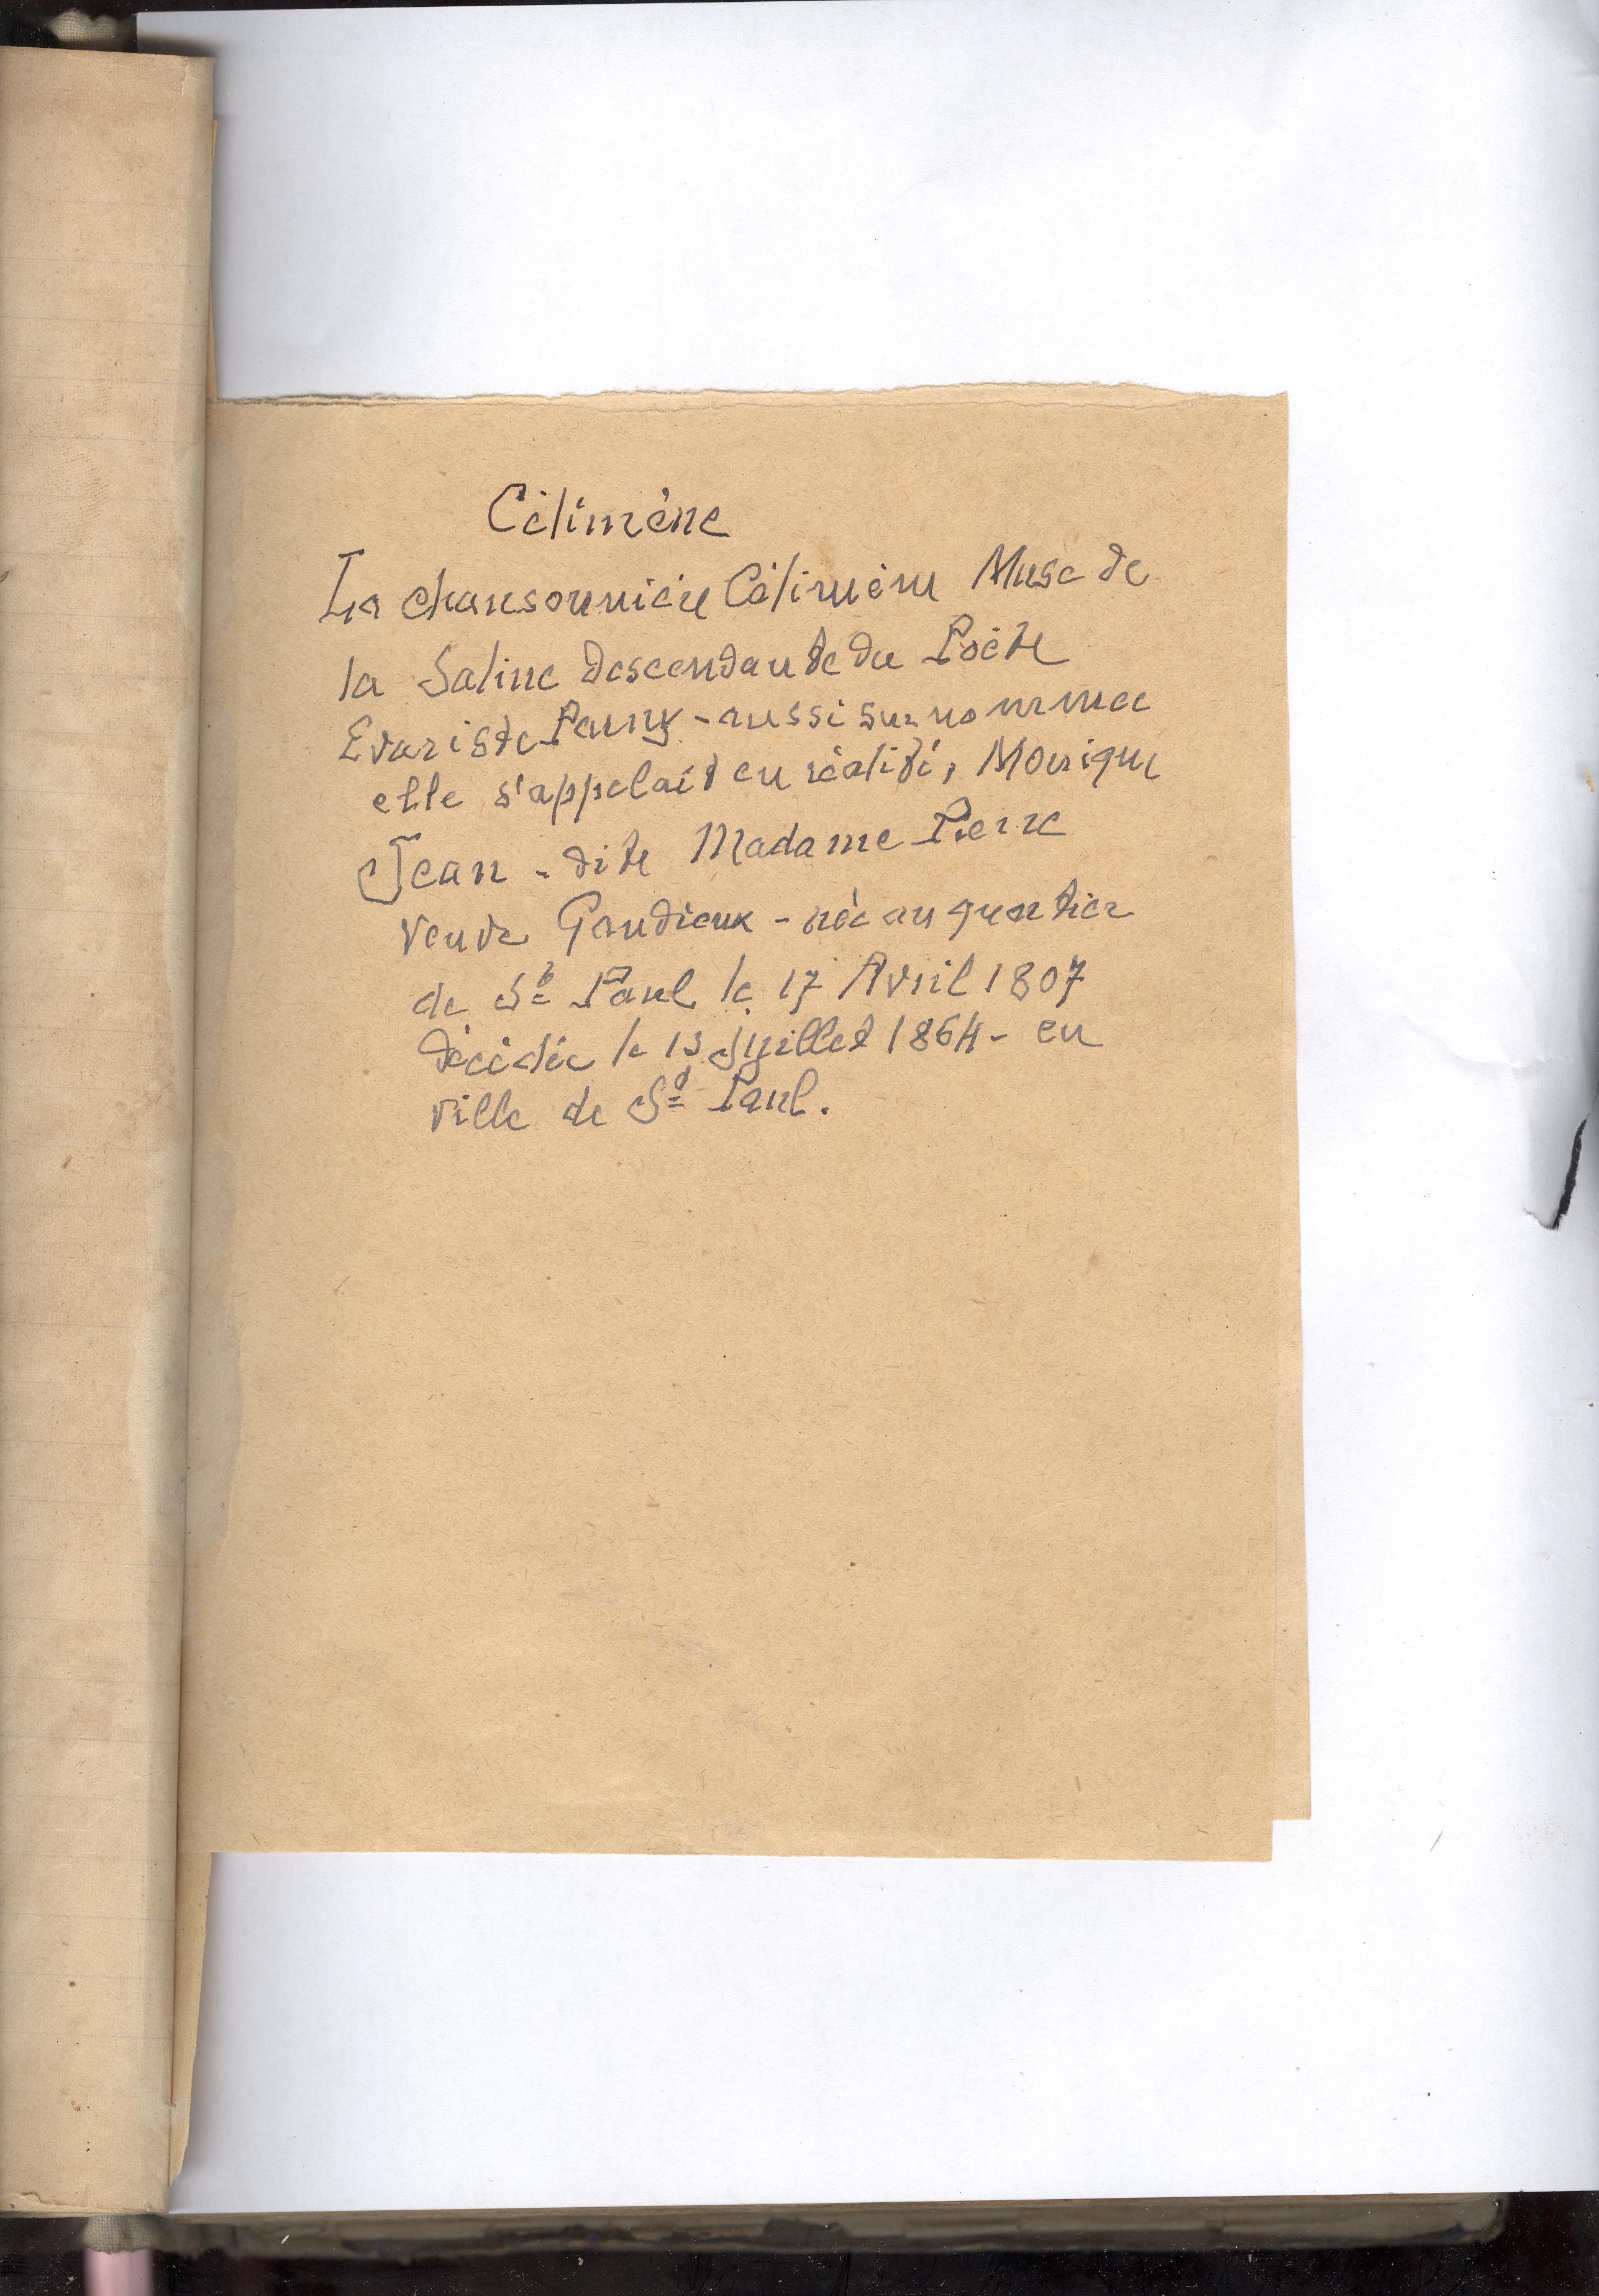 Célimène
La chansonnière Célimène Muse de
la Saline descendante du Poète
Evariste Parny - aussi surnommée
elle s'appelait en réalité, Monique
Jean - dite Madame Pierre
veuve Gaudieux - née au quartier
de St Paul le 17 Avril 1807
décédée le 13 Juillet 1864 - en
ville de St Paul.